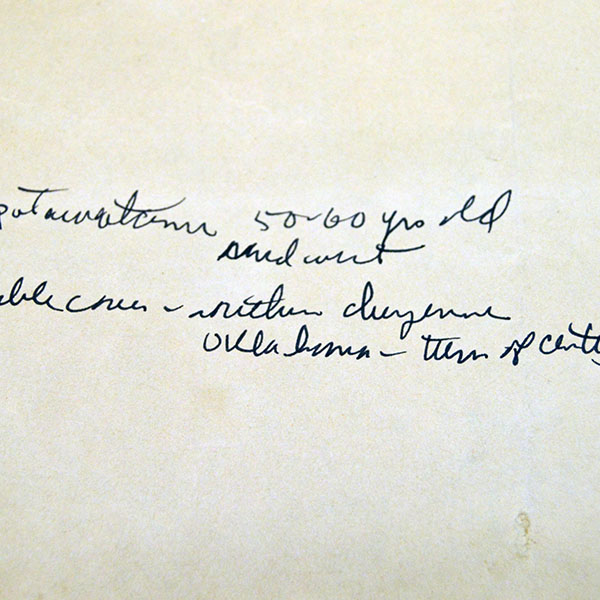 potawatami 50-60 yrs old
midwest
ble cover - northern cheyenne
Oklahoma - turn of cent